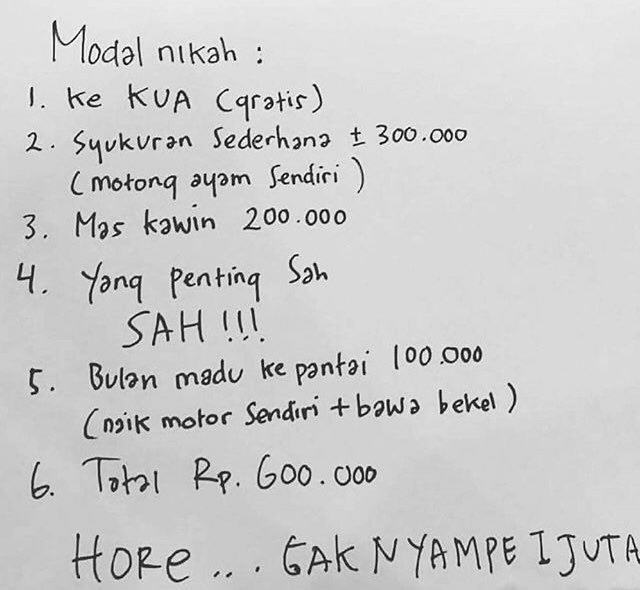 Modal nikah :
1. Ke KUA (gratis)
2. Syukuran Sederhana ± 300.000
(motong ayam Sendiri)
3. Mas kawin 200.000
4. Yang penting Sah
SAH !!!
5. Bulan madu ke pantai 100.000
(naik motor Sendiri + bawa bekel)
6. Total Rp. 600.000
HORE ... GAK NYAMPE 1 JUTA